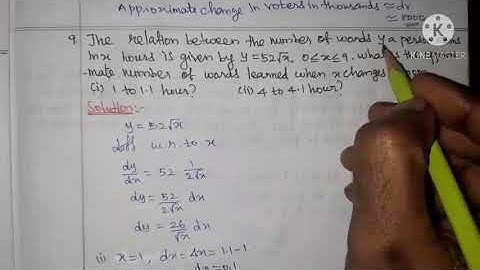 Approximate change in voters in thousands ≃ dv
9. The relation between the number of words y a person
in x hours is given by y = 52√x, 0≤x≤9. What is the
-mate number of words learned when x changes
(i) 1 to 1.1 hour? (ii) 4 to 4.1 hour?
Solution:-
y = 52√x
diff w.r. to x
dy/dx = 52 1/2√x
dy = 52/2√x dx
dy = 26/√x dx
(i) x=1, dx = Δx = 1.1-1
dx = 0.1
K